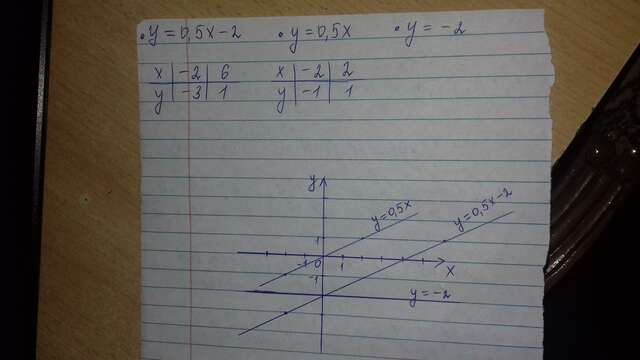 • y = 0,5x-2 • y = 0,5x • y = -2
x | -2 | 6 x | -2 | 2
y | -3 | 1 y | -1 | 1
y
y=0,5x y=0,5x-2
1
-1 0 1 x
-1
y=-2